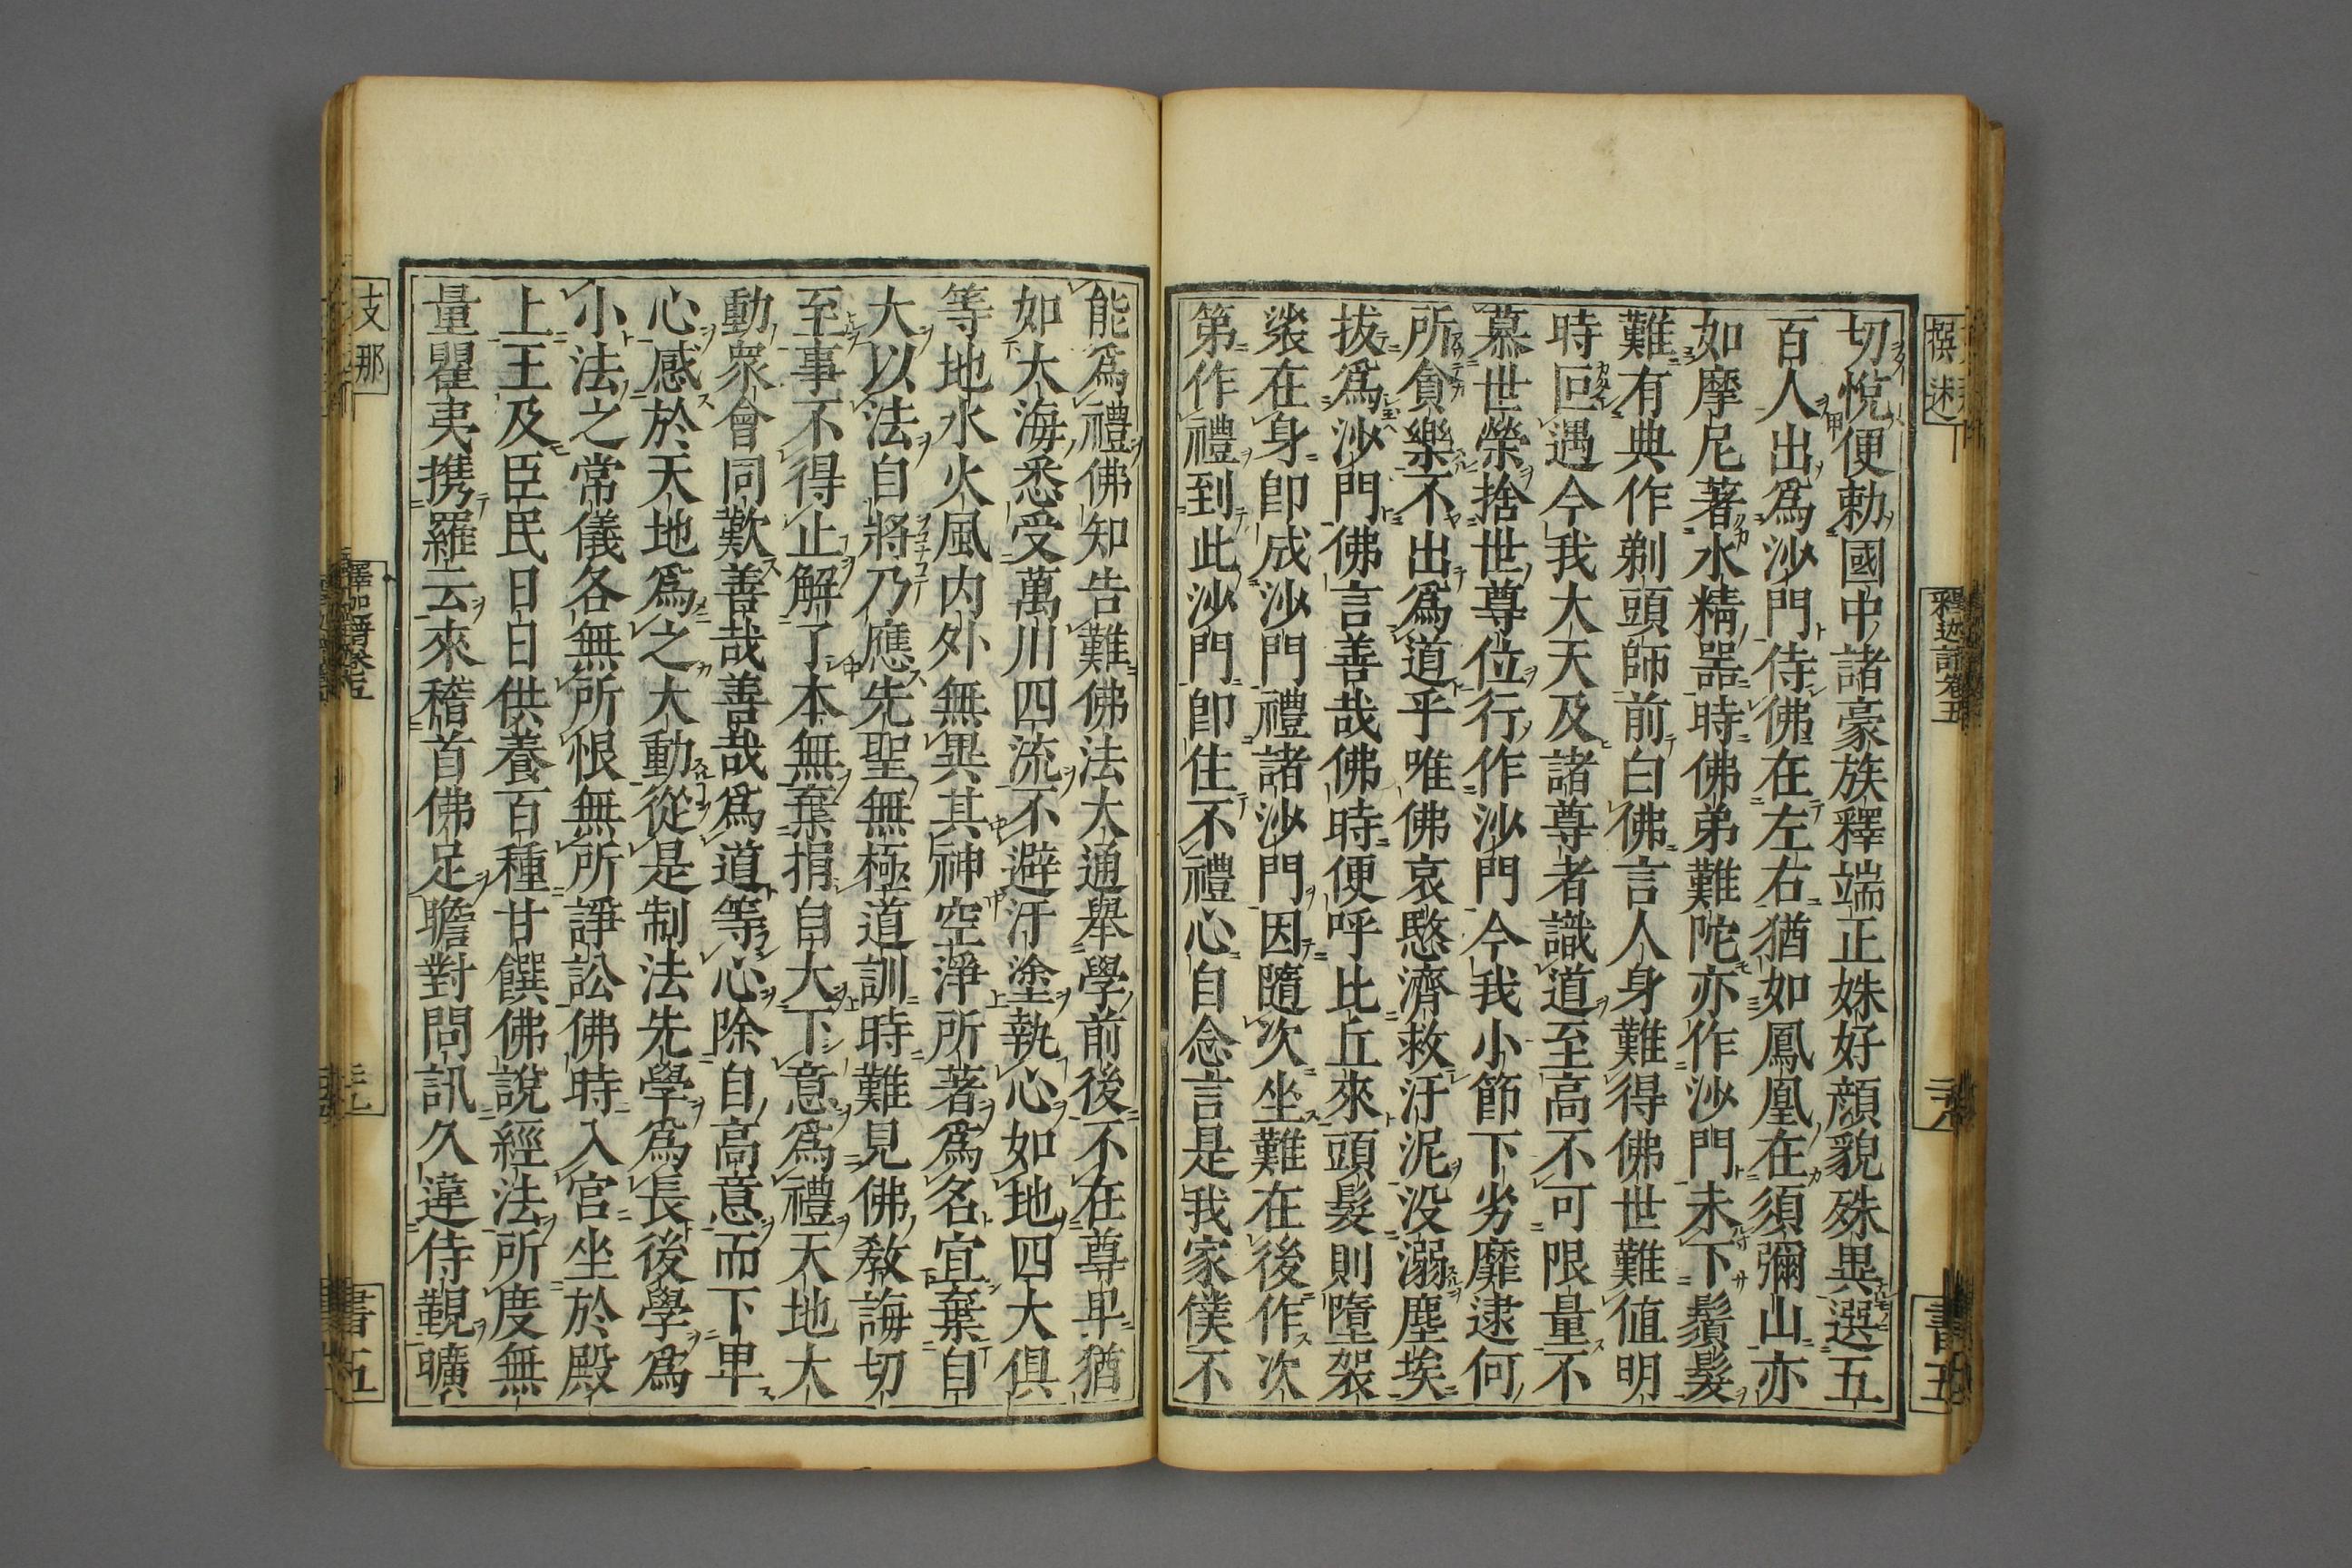 撰述
釋迦譜卷五
書五
切悅便勅國中諸豪族釋端正姝好顔貌殊異選五
百人出爲沙門侍佛在左右猶如鳳凰在須彌山亦
如摩尼著水精器時佛弟難陀亦作沙門未下鬚髮
難有典作剃頭師前白佛言人身難得佛世難値明
時回遇今我大天及諸尊者識道至高不可限量不
慕世榮捨世尊位行作沙門今我小節下劣靡逮何
所貪樂不出爲道乎唯佛哀愍濟救汙泥没溺塵埃
拔爲沙門佛言善哉佛時便呼比丘來頭髮則墮袈
裟在身卽成沙門禮諸沙門因隨次坐難在後作次
第作禮到此沙門卽住不禮心自念言是我家僕不
能爲禮佛知告難佛法大通舉學前後不在尊卑猶
如大海悉受萬川四流不避汙塗執心如地四大俱
等地水火風内外無異其神空淨所著爲名宜棄自
大以法自將乃應先聖無極道訓時難見佛教誨切
至事不得止解了本無棄捐自大下意爲禮天地大
動衆會同歎善哉善哉爲道等心除自高意而下卑
心感於天地爲之大動從是制法先學爲長後學爲
小法之常儀各無所恨無所諍訟佛時入宮坐於殿
上王及臣民日日供養百種甘饌佛說經法所度無
量瞿夷携羅云來稽首佛足瞻對問訊久違侍覲曠
支那
釋迦譜卷五
書五